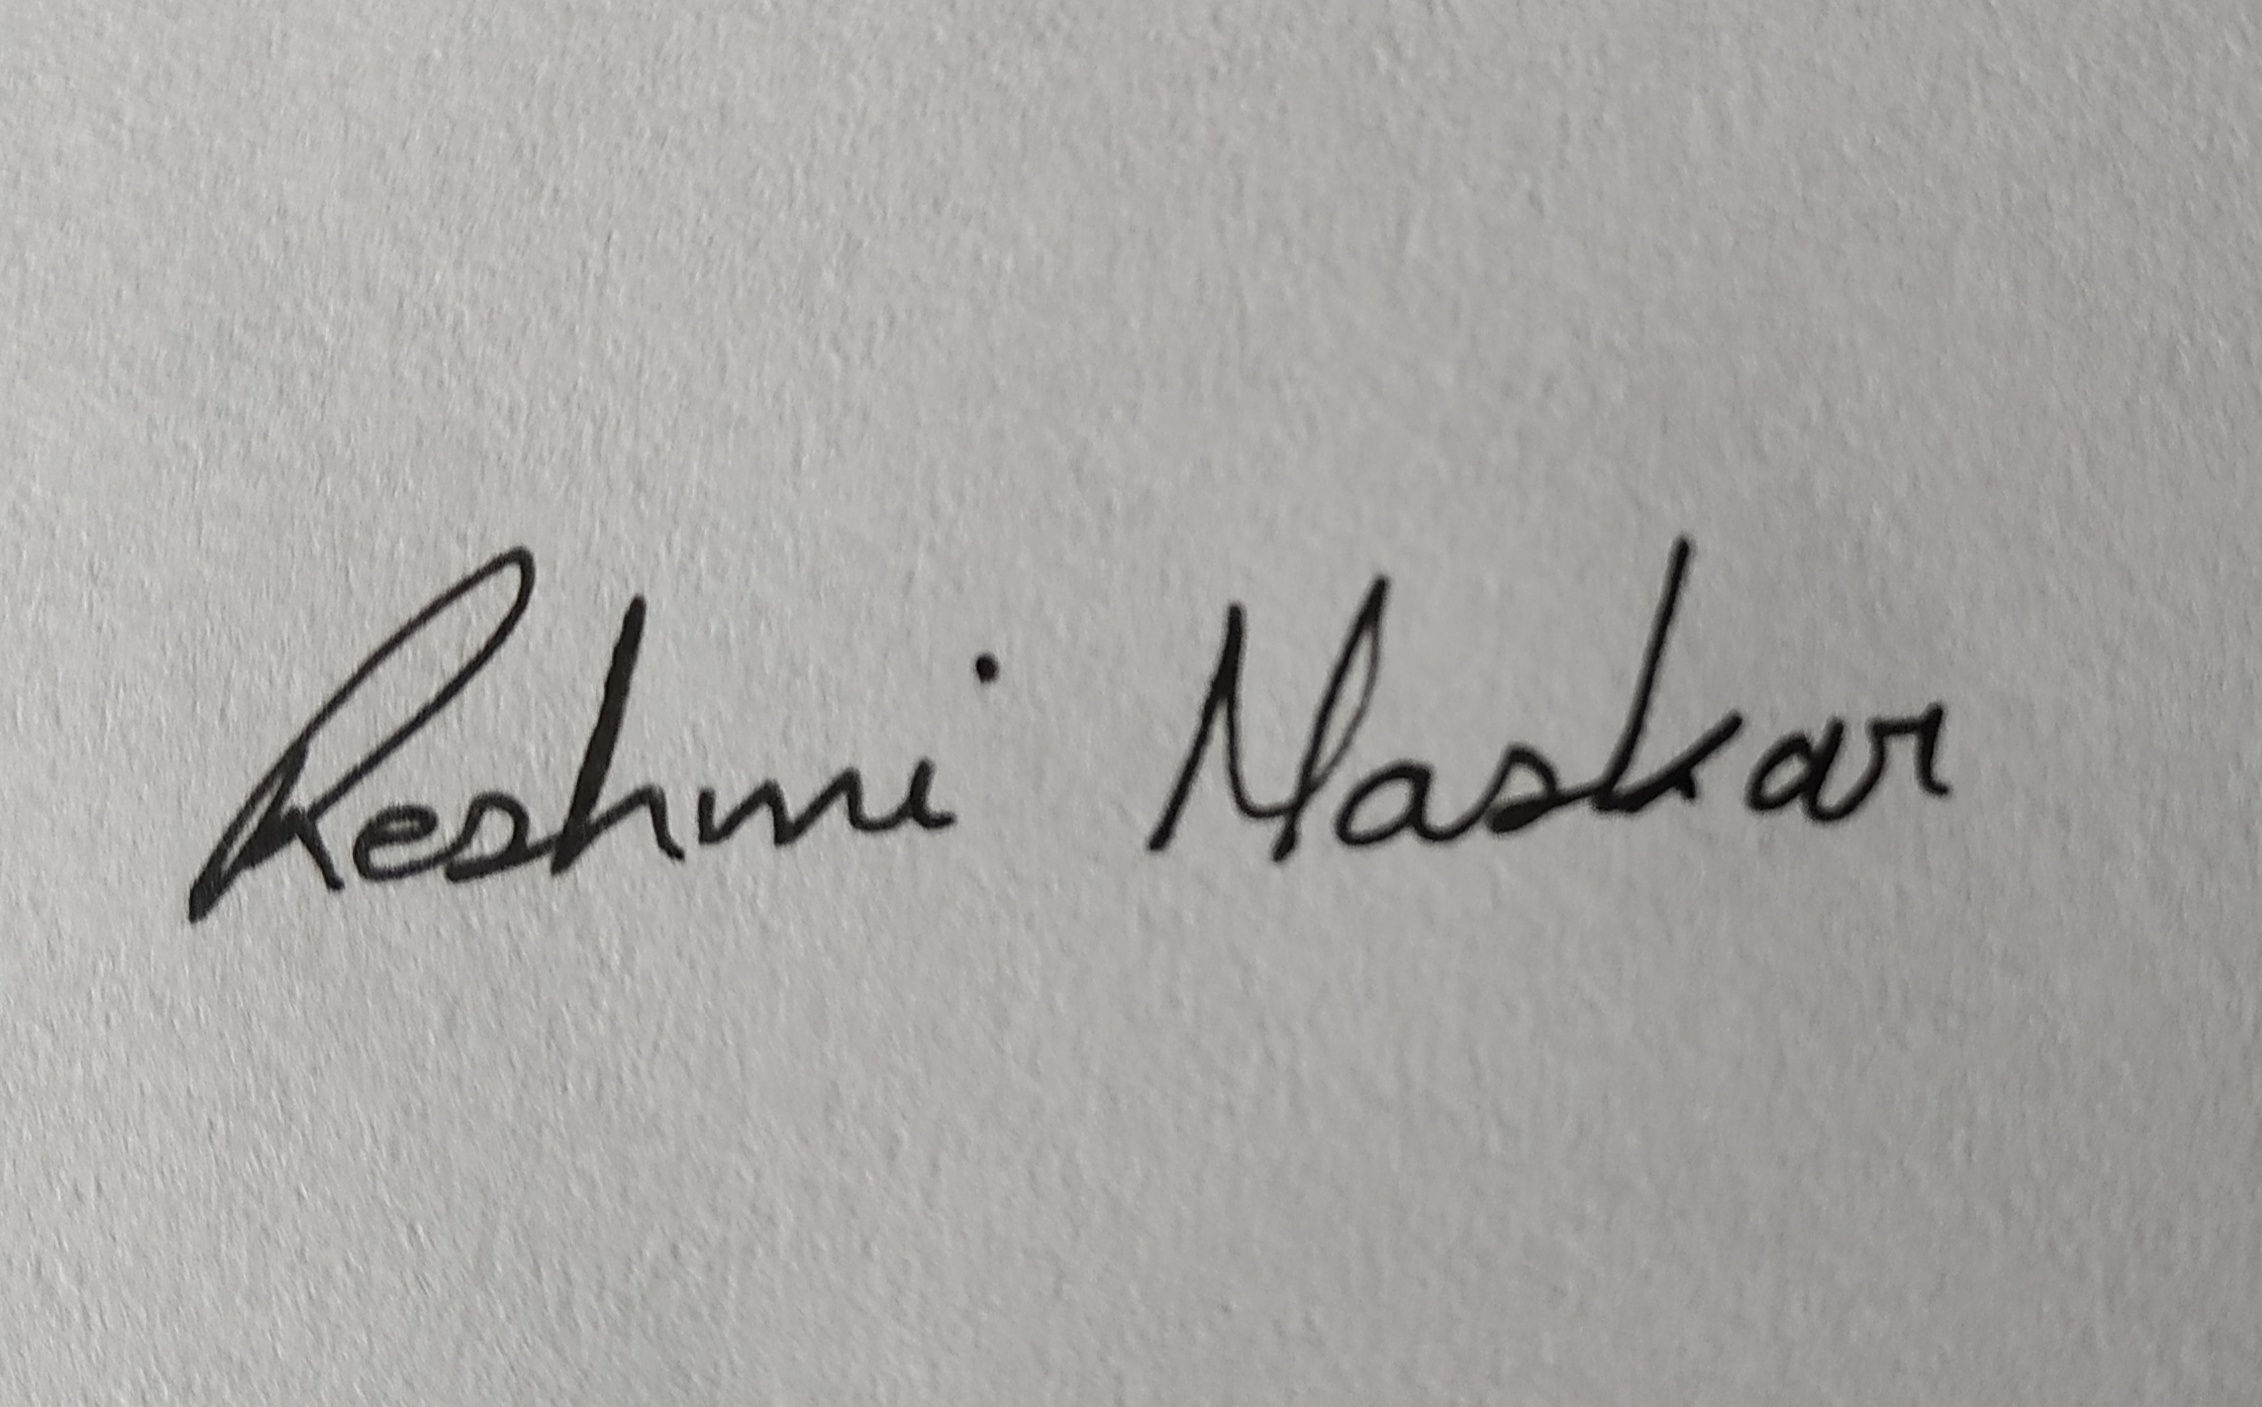 Reshmi Maskar